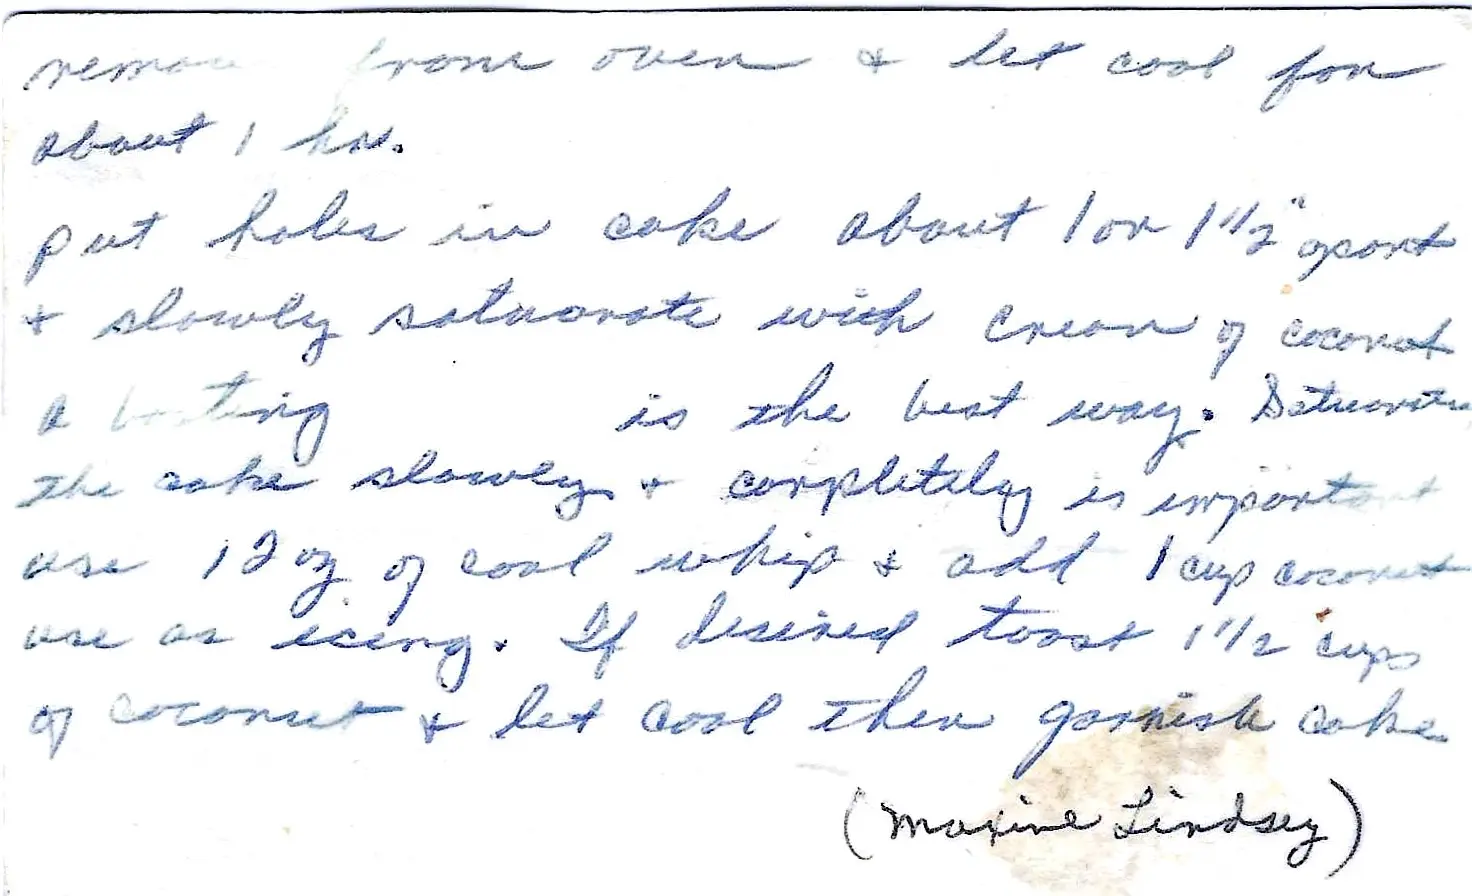 remove from oven & let cool for
about 1 hr.
put holes in cake about 1 or 1 1/2" apart
& slowly satuorate with cream of coconut
a is the best way. Satuorating
the cake slowly & completely is important
use 12 oz of cool whip & add 1 cup coconut
use as iceing. If desired toast 1 1/2 cups
of coconut & let cool then garnish cake.
(Maxine Lindsey)